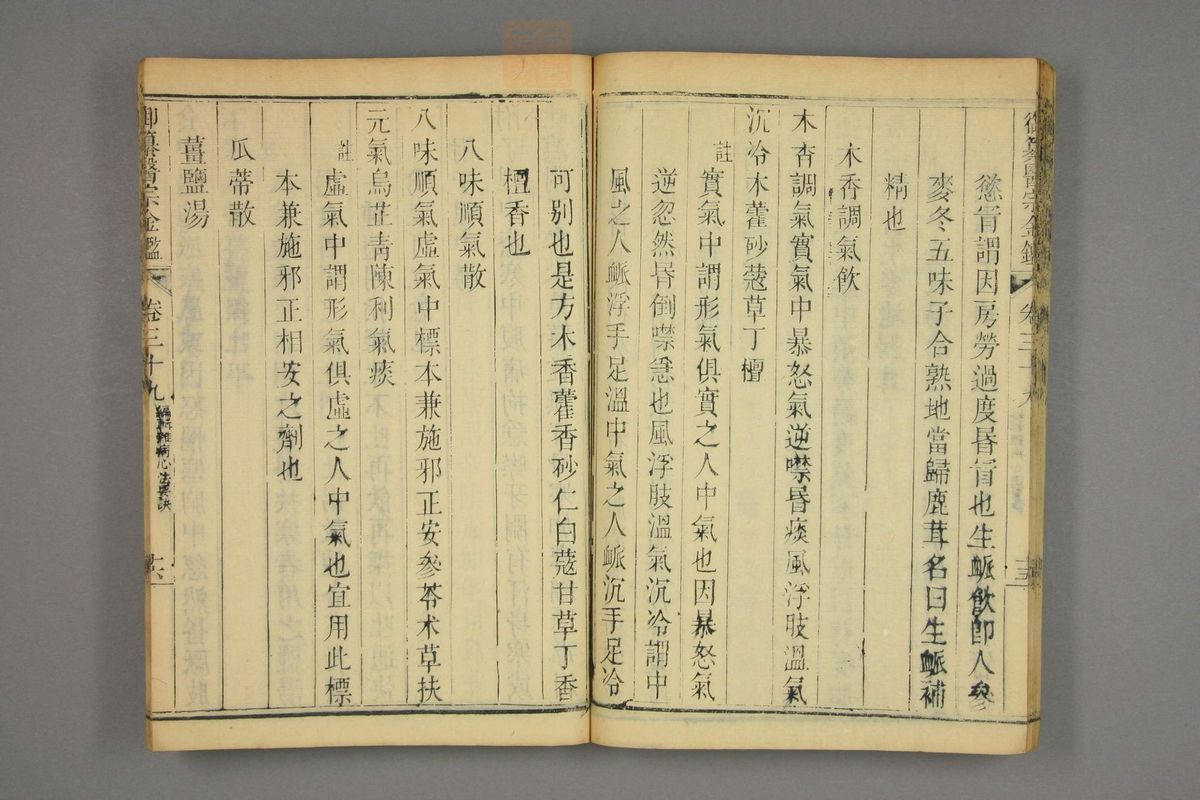 慾昏謂因房勞過度昏冒也生脈飲卽人參
麥冬五味子合熟地當歸鹿茸名曰生脈補
精也
木香調氣飲
木香調氣實氣中暴怒氣逆噤昏痰風浮肢溫氣
沉冷木藿砂蔻草丁檀
註
實氣中謂形氣俱實之人中氣也因暴怒氣
逆忽然昏倒噤急也風浮肢溫氣沉冷謂中
風之人脈浮手足溫中氣之人脈沉手足冷
可別也是方木香藿香砂仁白蔻甘草丁香
檀香也
八味順氣散
八味順氣虛氣中標本兼施邪正安參苓朮草扶
元氣烏芷靑陳利氣痰
註
虛氣中謂形氣俱虛之人中氣也宜用此標
本兼施邪正相安之劑也
瓜蒂散
薑鹽湯
御纂醫宗金鑑
卷三十九
編輯雜病心法要訣